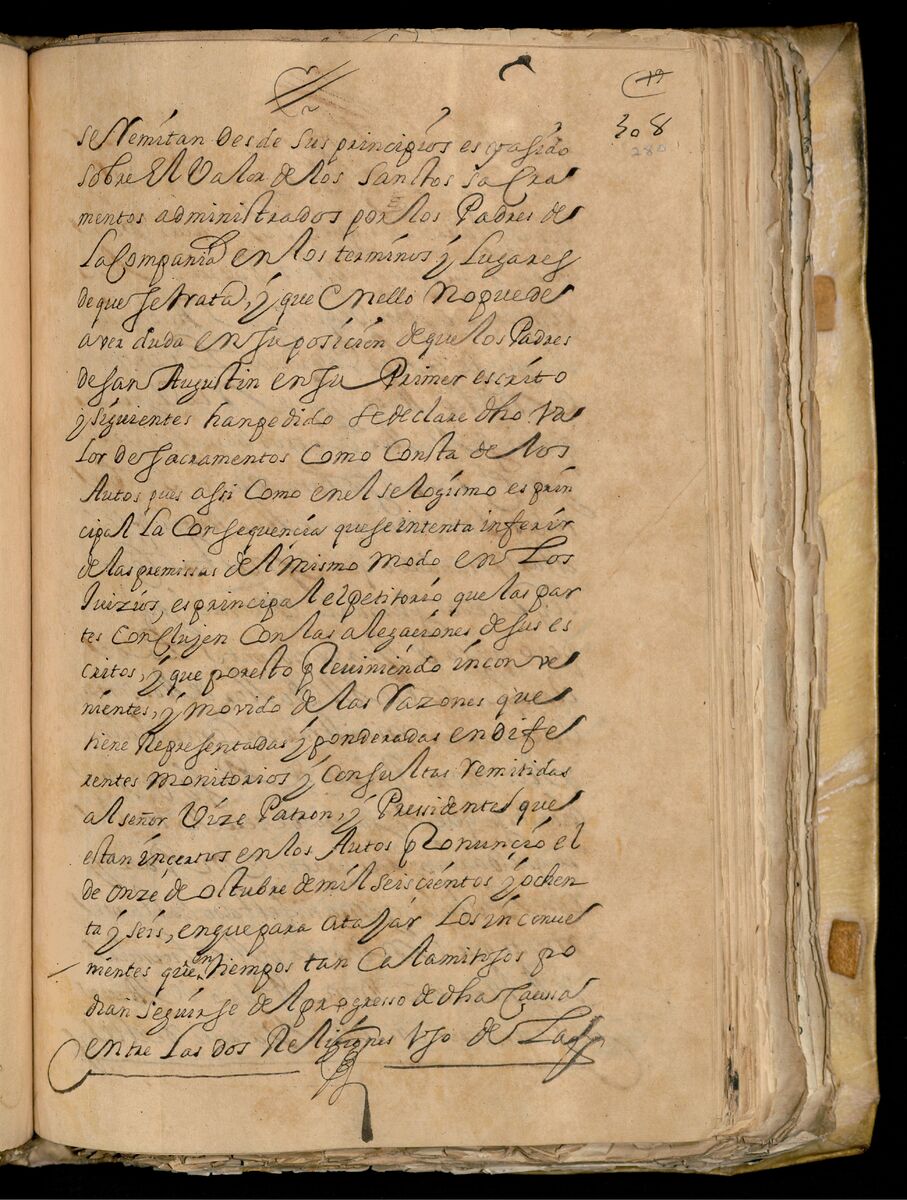 19
308
280
se Remitan desde sus principios es y a sido
sobre El Valor de los sanctos sacra
mentos administrados por los Padres de
La Compania en los terminos y Lugares
de que se trata, y que en ello No puede
aver duda en suposicion de que los Padres
de san Augustin en su Primer escrito
y siguientes han pedido se declare dho Va
lor de sacramentos Como Consta de los
Autos pues assi Como en el selogismo es prin
cipal La Consequencia que se intenta inferir
de las premissas del mismo modo en Los
Juizios, es principal el petitorio que las par
tes Conclujen Con las alegaciones de sus es
critos, y que por esto Previniendo inconve
nientes, y movido de las Razones que
tiene Representadas y ponderadas en dife
rentes monitorios y Consultas remitidas
al señor Vize Patron, y Pressidente que
estan incertos en los Autos Pronunció el
de onze de octubre de mil seiscientos y ochen
ta y seis, en que para atajar Los inconve
nientes que en tiempos tan Calamitosos po
dian seguirse del progresso de dha Caussa
entre Las dos Religiones Vso de La